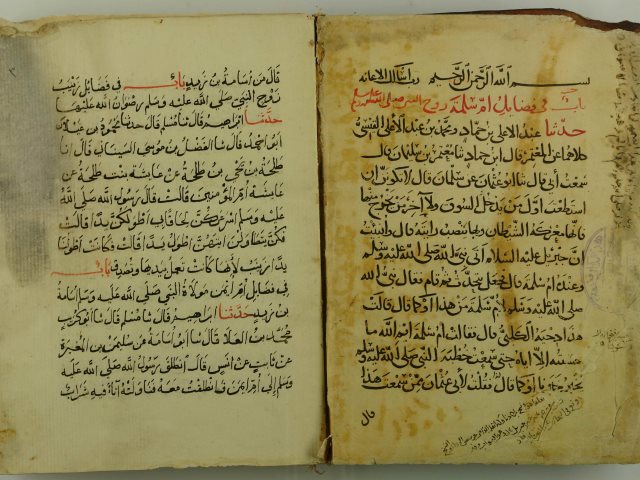 بسم الله الرحمن الرحيم
باب في فضايل ام سلمة زوج النبي صلى الله عليه وسلم
حدثنا عبد الاعلى بن حماد ومحمد بن عبد الاعلى القيسي
كلاهما عن المعتمر قال ابن حماد ثنا معتمر بن سليمان قال
سمعت أبي قال ثنا ابو عثمان عن سلمان قال لا تكونن ان
استطعت اول من يدخل السوق ولا آخر من يخرج منها
فانها معركة الشيطان وبها ينصب رايته قال وانبئت
ان جبريل عليه السلام أتى نبي الله صلى الله عليه وسلم
وعنده ام سلمة قال فجعل يتحدث ثم قام فقال نبي الله
صلى الله عليه وسلم لام سلمة من هذا او كما قال قالت
هذا دحية الكلبي قال فقالت ام سلمة ايم الله ما
حسبته الا اياه حتى سمعت خطبة النبي صلى الله عليه وسلم
يخبر خبرنا او كما قال قال فقلت لأبي عثمان ممن سمعت هذا
قال
قال من اسامة بن زيد باب في فضايل زينب
زوج النبي صلى الله عليه وسلم رضوان الله عليها
حدثنا ابراهيم قال ثنا مسلم قال حدثنا محمود بن غيلان
ابو احمد قال ثنا الفضل بن موسى السيناني قال انا
طلحة بن يحيى بن طلحة عن عايشة بنت طلحة عن
عايشة ام المؤمنين قالت قال رسول الله صلى الله
عليه وسلم اسرعكن لحاقا بي اطولكن يدا قالت
فكن يتطاولن ايتهن اطول يدا قالت فكانت اطولنا
يدا زينب لأنها كانت تعمل بيدها وتصدق باب
في فضايل ام ايمن مولاة النبي صلى الله عليه وسلم ام اسامة
بن زيد حدثنا ابراهيم قال ثنا مسلم قال ثنا ابو كريب
محمد بن العلا قال ثنا ابو اسامة عن سليمن بن المغيرة
عن ثابت عن انس قال انطلق رسول الله صلى الله عليه
وسلم إلى ام ايمن فانطلقت معه فناولته انآء فيه شراب